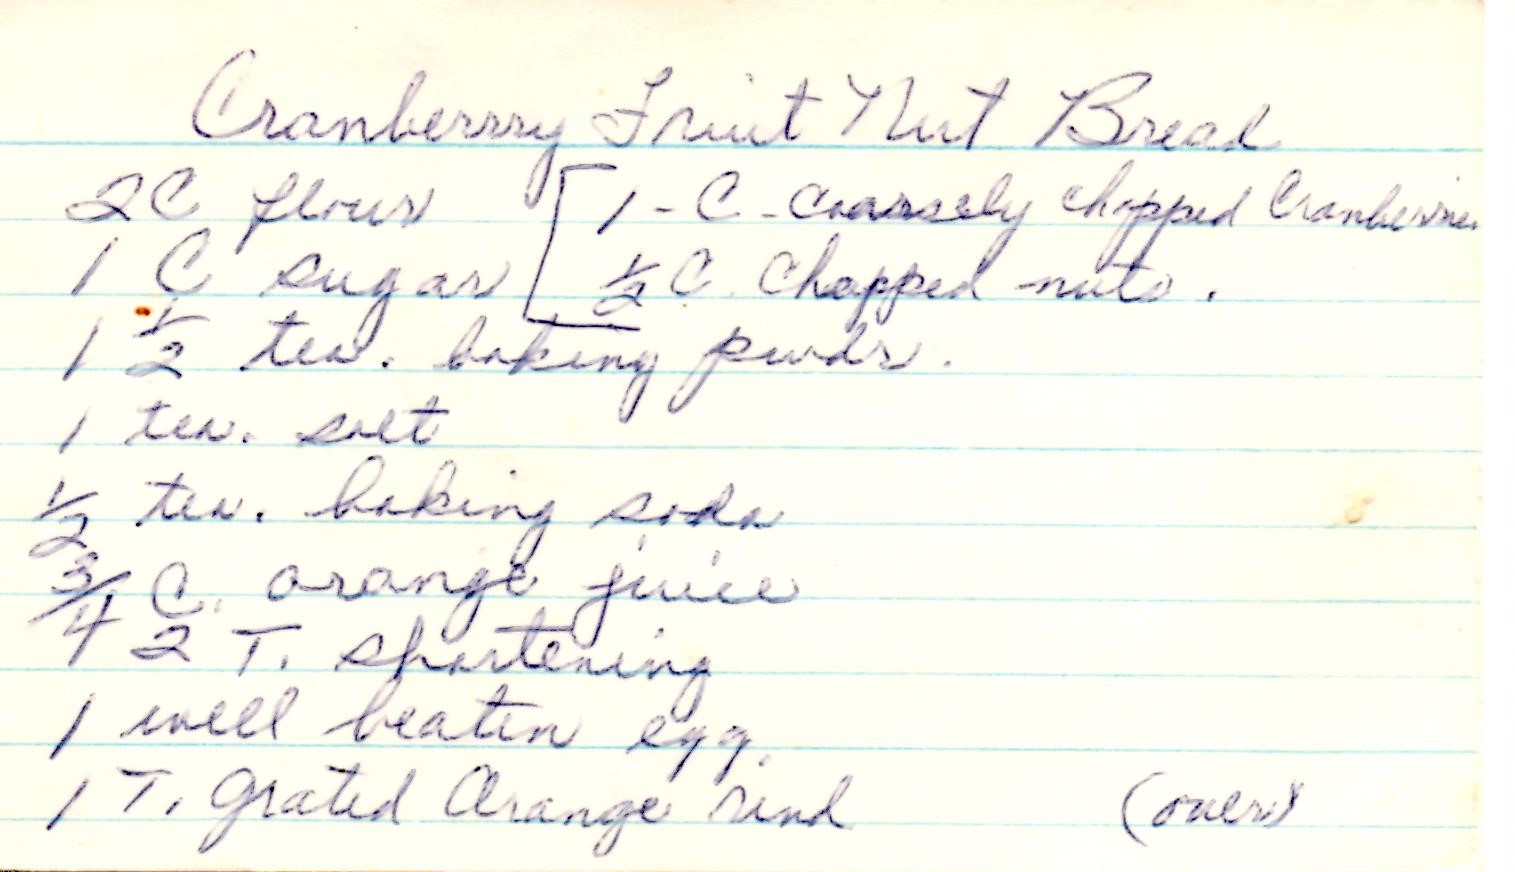 Cranberrry Fruit Nut Bread
2C flour [ 1 - C - coarsely chopped Cranberries
1 C sugar [ ½ C. Chopped nuts.
1 ½ tea. baking pwdr.
1 tea. salt
½ tea. baking soda
3/4 C. orange juice
2 T. shortening
1 well beaten egg.
1 T. grated Orange rind (over)